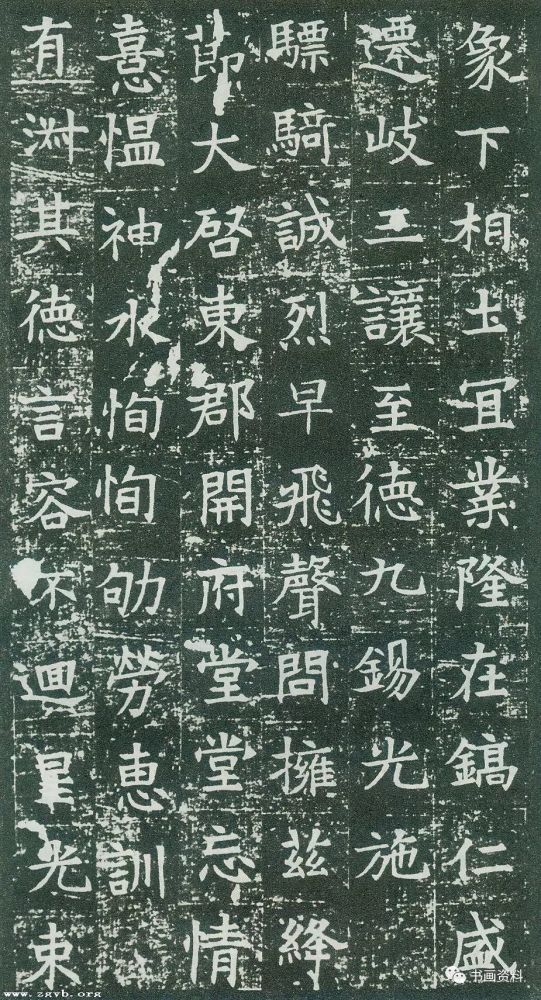 象下相土冝業隆在鎬仁盛
遷岐三讓至徳九錫光施
驃騎誠烈早飛聲問擁茲絳
節大啓東郡開府堂堂忘情
憙愠神永恂恂劬勞惠訓
有淋其徳言容不迴星光束
www.zgvb.org
书画资料